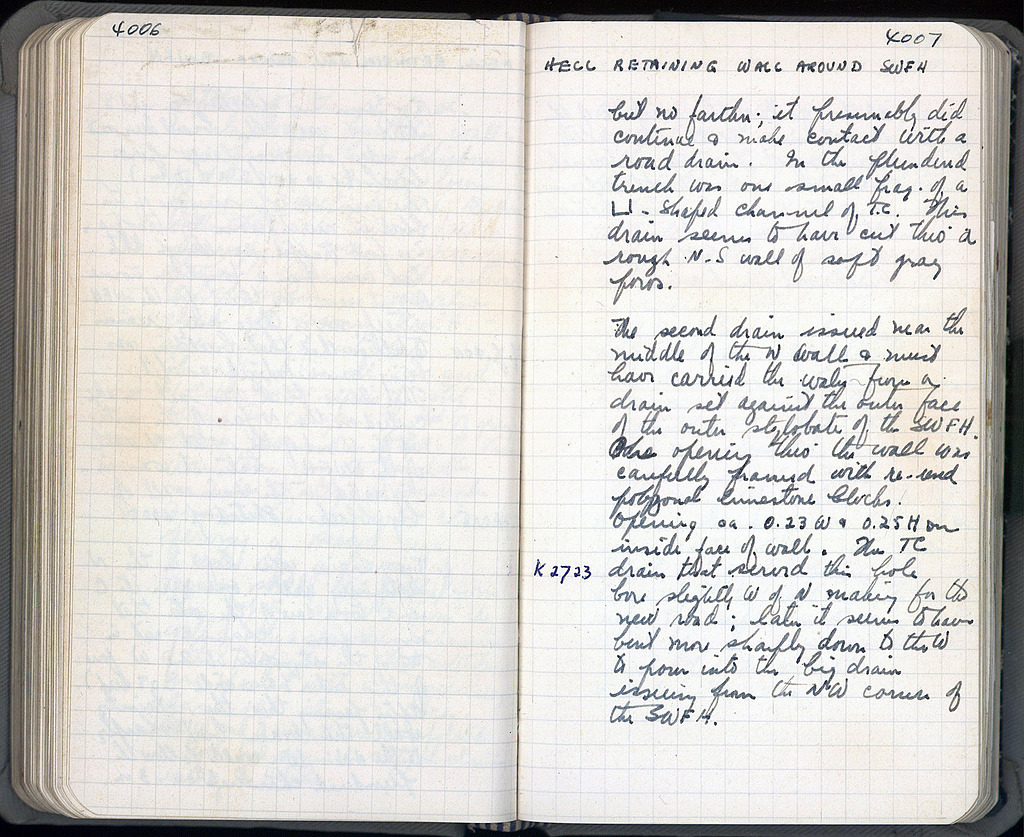 4006
4007
HELL RETAINING WALL AROUND SWFH
but no farther; it presumably did
continue & make contact with a
road drain. In the plundered
trench was one small frag. of a
⊔ - shaped channel of T.C. This
drain seems to have cut thro a
rough N-S wall of soft gray
poros.
The second drain issued near the
middle of the N wall & must
have carried the water from a
drain set against the outer face
of the outer stylobate of the SWFH.
The opening thro the wall was
carefully framed with re-used
polygonal limestone blocks.
Opening ca. 0.23 W & 0.25 H on
inside face of wall. The TC
K 2723 drain that served this hole
bore slightly W of N making for the
new road; later it seems to have
bent more sharply down to the W
to pour into the big drain
issuing from the NW corner of
the SWFH.